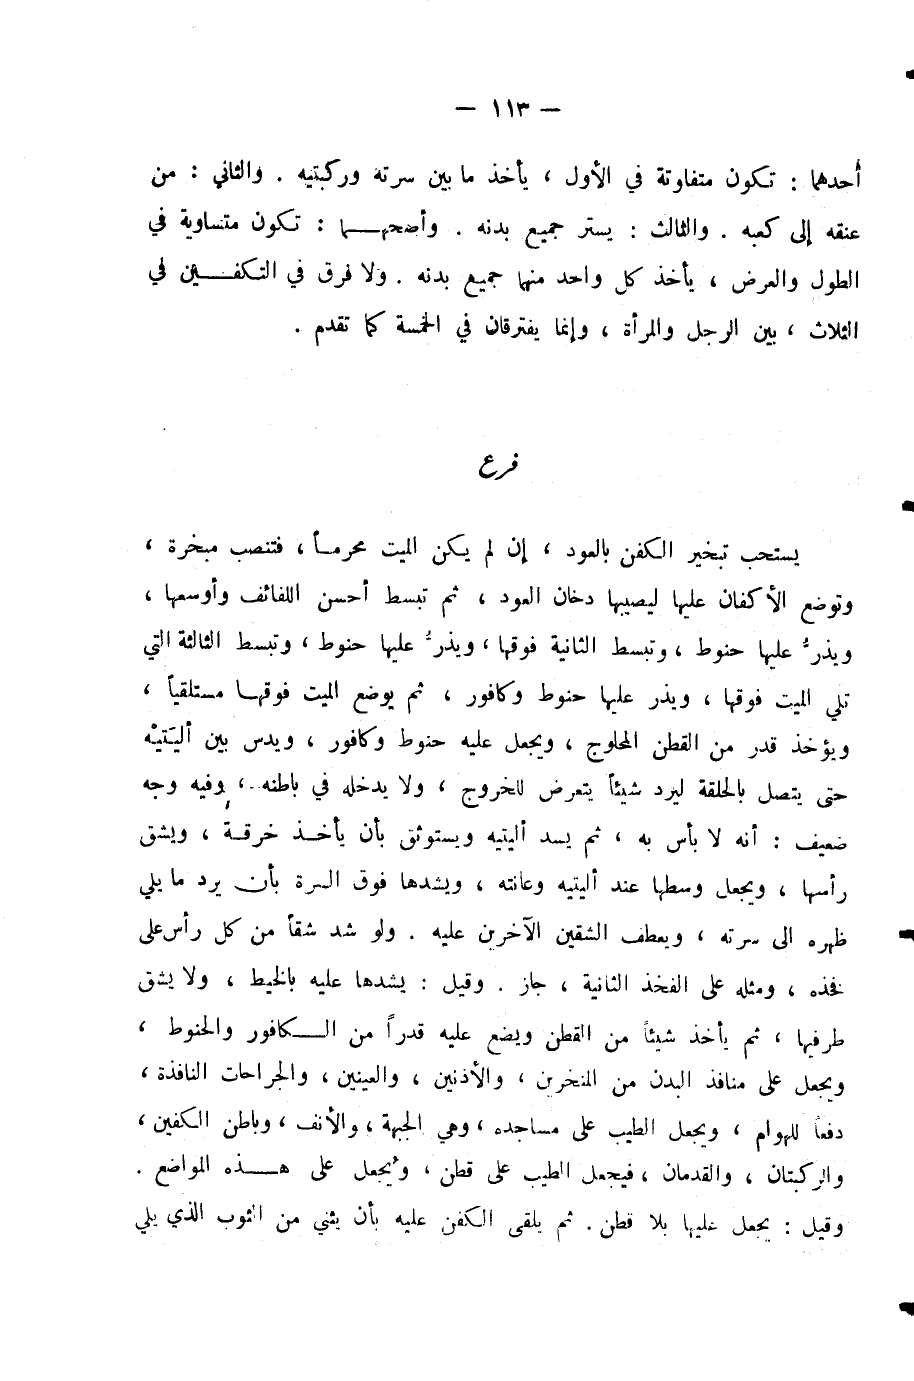 — ١١٣ —
أحدهما : تكون متفاوتة في الأول ، يأخذ ما بين سرته وركبتيه . والثاني : من
عنقه إلى كعبه . والثالث : يستر جميع بدنه . وأصحهما : تكون متساوية في
الطول والعرض ، يأخذ كل واحد منها جميع بدنه . ولا فرق في التكفين في
الثلاث ، بين الرجل والمرأة ، وإنما يفترقان في الخمسة كما تقدم .
فرع
يستحب تبخير الكفن بالعود ، إن لم يكن الميت محرماً ، فتنصب مبخرة ،
وتوضع الأكفان عليها ليصيبها دخان العود ، ثم تبسط أحسن اللفائف وأوسعها ،
ويذرُّ عليها حنوط ، وتبسط الثانية فوقها ، ويذرُّ عليها حنوط ، وتبسط الثالثة التي
تلي الميت فوقها ، ويذر عليها حنوط وكافور ، ثم يوضع الميت فوقها مستلقياً ،
ويؤخذ قدر من القطن المحلوج ، ويجعل عليه حنوط وكافور ، ويدس بين أليَتيْه
حتى يتصل بالحلقة ليرد شيئاً يتعرض للخروج ، ولا يدخله في باطنه ، وفيه وجه
ضعيف : أنه لا بأس به ، ثم يسد أليتيه ويستوثق بأن يأخذ خرقة ، ويشق
رأسها ، ويجعل وسطها عند أليتيه وعانته ، ويشدها فوق السرة بأن يرد ما يلي
ظهره الى سرته ، ويعطف الشقين الآخرين عليه . ولو شد شقاً من كل رأس على
فخذه ، ومثله على الفخذ الثانية ، جاز . وقيل : يشدها عليه بالخيط ، ولا يشق
طرفيها ، ثم يأخذ شيئاً من القطن ويضع عليه قدراً من الكافور والحنوط ،
ويجعل على منافذ البدن من المنخرين ، والأذنين ، والعينين ، والجراحات النافذة ،
دفعاً للهوام ، ويجعل الطيب على مساجده ، وهي الجبهة ، والأنف ، وباطن الكفين ،
والركبتان ، والقدمان ، فيجعل الطيب على قطن ، ويُجعل على هذه المواضع .
وقيل : يجعل عليها بلا قطن . ثم يلقى الكفن عليه بأن يثني من الثوب الذي يلي